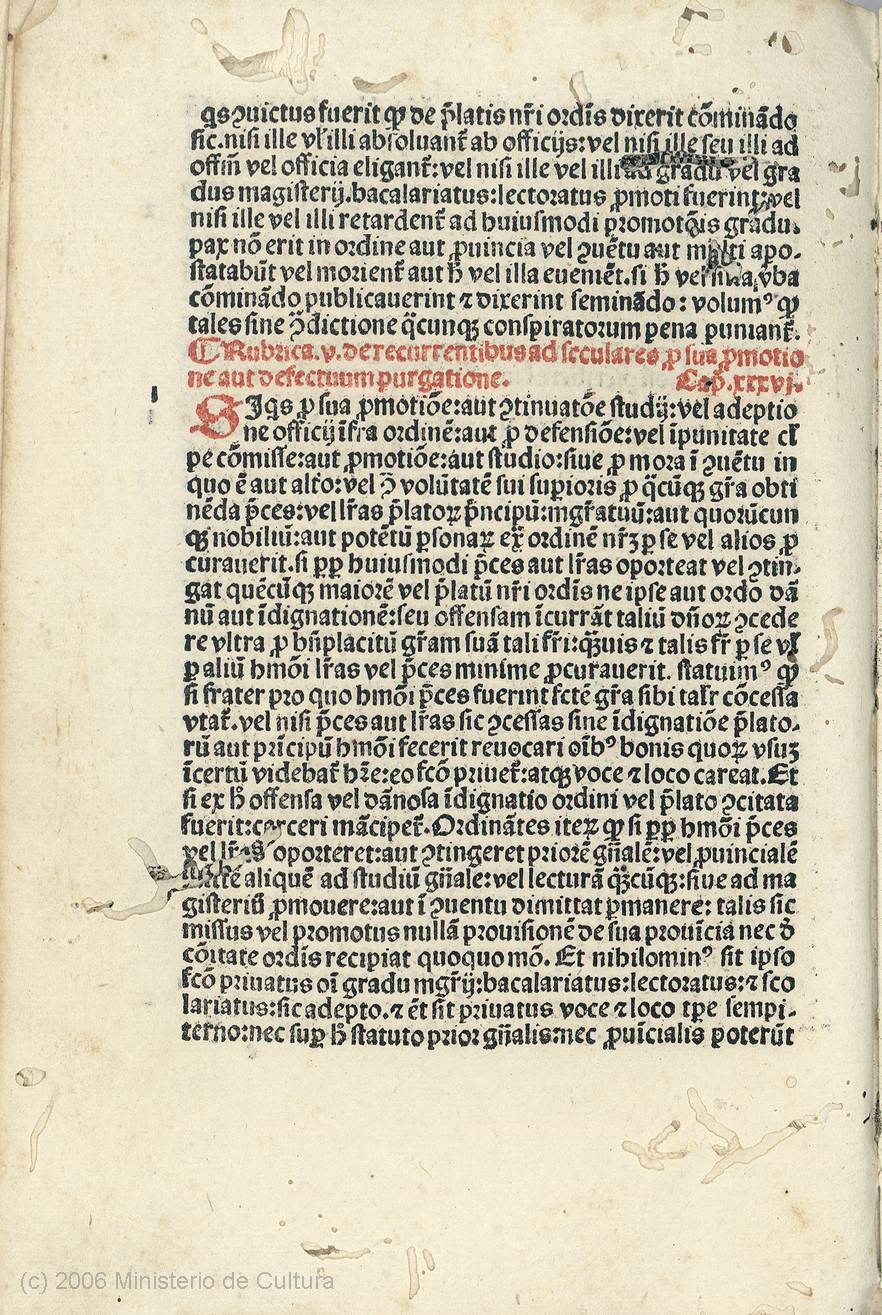 q̄s ꝯuictus fuerit ꝙ de p̄latis nr̄i ordīs dixerit cōminādo
sic.nisi ille vl̓ illi absoluant̄ ab officijs:vel nisi ille seu illi ad
offm̄ vel officia eligant̄:vel nisi ille vel illi gradū vel gra
dus magisterij.bacalariatus:lectoratus ꝓmoti fuerint:vel
nisi ille vel illi retardent̄ ad huiusmodi gradū.
pax nō erit in ordine aut ꝓuincia vel ꝯuētu aut apo-
statabūt vel morient̄ aut h̄ vel illa eueniēt.si h̄ vel v̄ba
cōminādo publicauerint ⁊ dixerint seminādo: volumꝰ ꝙ
tales sine ꝯ̄dictione q̄cunqꝫ conspiratorum pena puniant̄.
¶ Rubrica.v.de recurrentibus ad seculares ꝓ sua ꝓmotio
ne aut defectuum purgatione. Cap̄.xxxvj.
SIq̄s ꝓ sua ꝓmotiōe:aut ꝯtinuatōe studij:vel adeptio
ne officij īfra ordinē:aut ꝓ defensiōe:vel īpunitate cl̄
pe cōmisse:aut ꝓmotiōe:aut studio:siue ꝓ mora ī ꝯuētu in
quo ē aut alio:vel ꝯ̄ volūtatē sui supioris ꝓ q̄cūqꝫ gr̄a obti
nēda p̄ces:vel lr̄as p̄latoꝝ p̄ncipū:mgr̄atuū:aut quorūcun
qꝫ nobiliū:aut potētū ꝑsonaꝝ ex̄ ordinē nr̄ꝫ ꝑ se vel alios ꝓ
curauerit.si ꝓp huiusmodi p̄ces aut lr̄as oporteat vel ꝯtin-
gat quēcūqꝫ maiorē vel p̄latū nr̄i ordīs ne ipse aut ordo dā
nū aut īdignationē:seu offensam īcurrāt taliū dn̄oꝝ ꝯcede
re vltra ꝓ bn̄placitū gr̄am suā tali fr̄i:q̄ꝫuis ⁊ talis fr̄ ꝑ se vl̓
ꝑ aliū hmōi lr̄as vel p̄ces minime ꝓcurauerit. statuimꝰ ꝙ
si frater pro quo hmōi p̄ces fuerint fctē gr̄a sibi talr̄ cōcessa
vtat̄.vel nisi p̄ces aut lr̄as sic ꝯcessas sine īdignatiōe p̄lato-
rū aut prīcipū hmōi fecerit reuocari oībꝰ bonis quoꝝ vsuꝫ
īcertū videbat̄ hr̄e:eo fcō priuet̄:atqꝫ voce ⁊ loco careat.Et
si ex h̄ offensa vel dānosa īdignatio ordini vel p̄lato ꝯcitata
fuerit:carceri mācipet̄.Ordinātes iteꝝ ꝙ si ꝓp hmōi p̄ces
vel lr̄as oporteret:aut ꝯtingeret priorē gn̄alē:vel ꝓuincialē
aliquē ad studiū gn̄ale:vel lecturā q̄ꝫcūqꝫ:siue ad ma
gisteriū ꝓmouere:aut ī ꝯuentu dimittat ꝑmanere: talis sic
missus vel promotus nullā prouisionē de sua prouīcia nec d̄
cōitate ordīs recipiat quoquo mō. Et nihilominꝰ sit ipso
fcō priuatus oī gradu mgr̄ij:bacalariatus:lectoratus:⁊ sco
lariatus:sic adepto.⁊ ēt sit priuatus voce ⁊ loco tꝑe sempi-
terno:nec suꝑ h̄ statuto prior gn̄alis:nec ꝓuīcialis poterūt
(c) 2006 Ministerio de Cultura